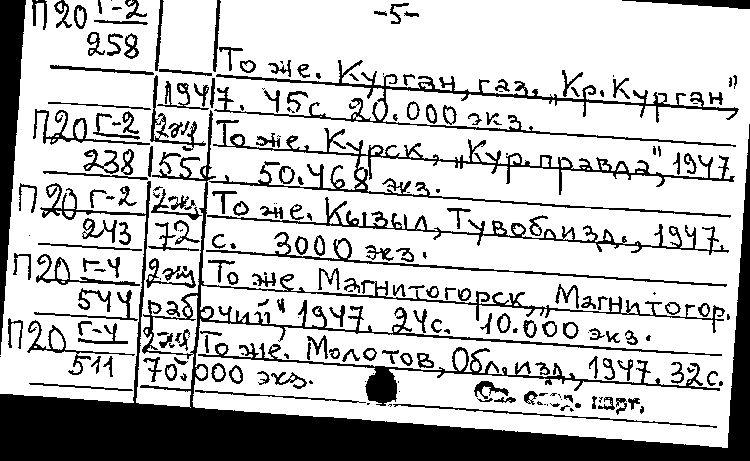 -5-
П20 Г-2
258
То же. Курган, газ. „Кр. Курган",
1947. 45с. 20.000 экз.
П20 Г-2 2экз. То же. Курск, „Кур. правда", 1947.
238 55с. 50.468 экз.
П20 Г-2 2экз. То же. Кызыл, Тувоблизд., 1947.
243 72 с. 3000 экз.
П20 Г-4 2экз То же. Магнитогорск, „Магнитогор.
544 рабочий", 1947. 24с. 10.000 экз.
П20 Г-4 2экз. То же. Молотов, Обл.изд., 1947. 32с.
511 70.000 экз.
См. карт.